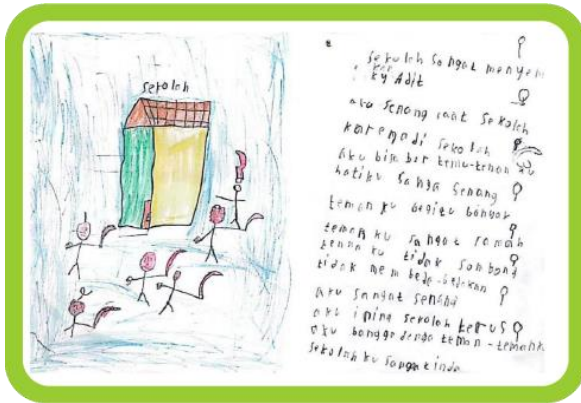 sekolah
sekolah sangat menyen
kg Adit
aku senang saat sekolah
karena di sekolah
aku bisa ber temu-teman ku
hatiku sanga senang
teman ku begitu banyak
teman ku sangat ramah
teman ku tidak sombong
tidak mem beda-bedakan
aku sangat senang
aku ingin sekolah terus
aku bangga denga teman-temank
sekolah ku sangat inda